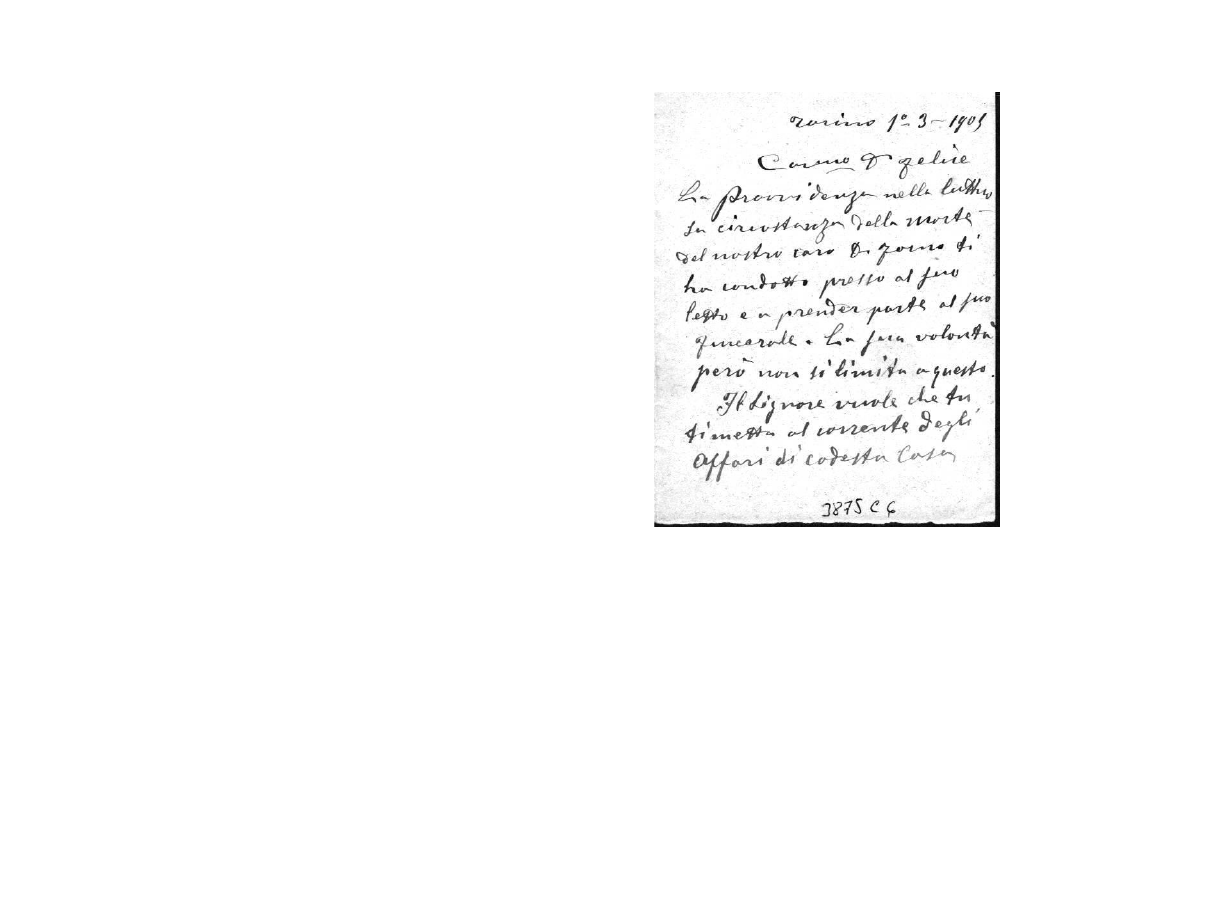 Torino 1º-3-1905
Carmo D Felice
La Provvidenza nella luttuo
sa circostanza della morte
del nostro caro D. ti
ha condotto presso al suo
letto e a prender parte al suo
funerale. La sua volontà
però non si limita a questo.
Il Signore vuole che tu
ti metta al corrente degli
affari di codesta Casa
3875 C 6